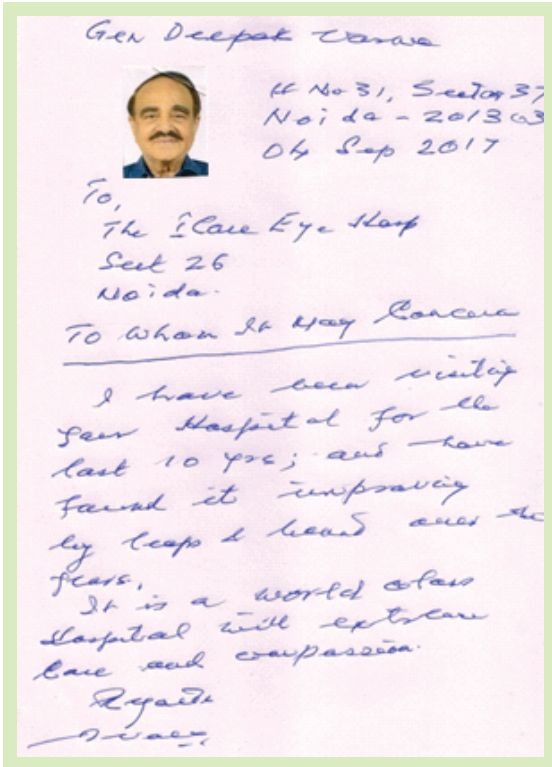 Gen Deepak Verma
H No 31, Sector 37
Noida - 201303
04 Sep 2017
To,
The ICare Eye Hosp
Sect 26
Noida.
To Whom It May Concern
I have been visiting
your Hospital for the
last 10 yrs; and have
found it improving
by leaps & bound over the
years.
It is a world class
Hospital with extreme
Care and compassion.
Regards